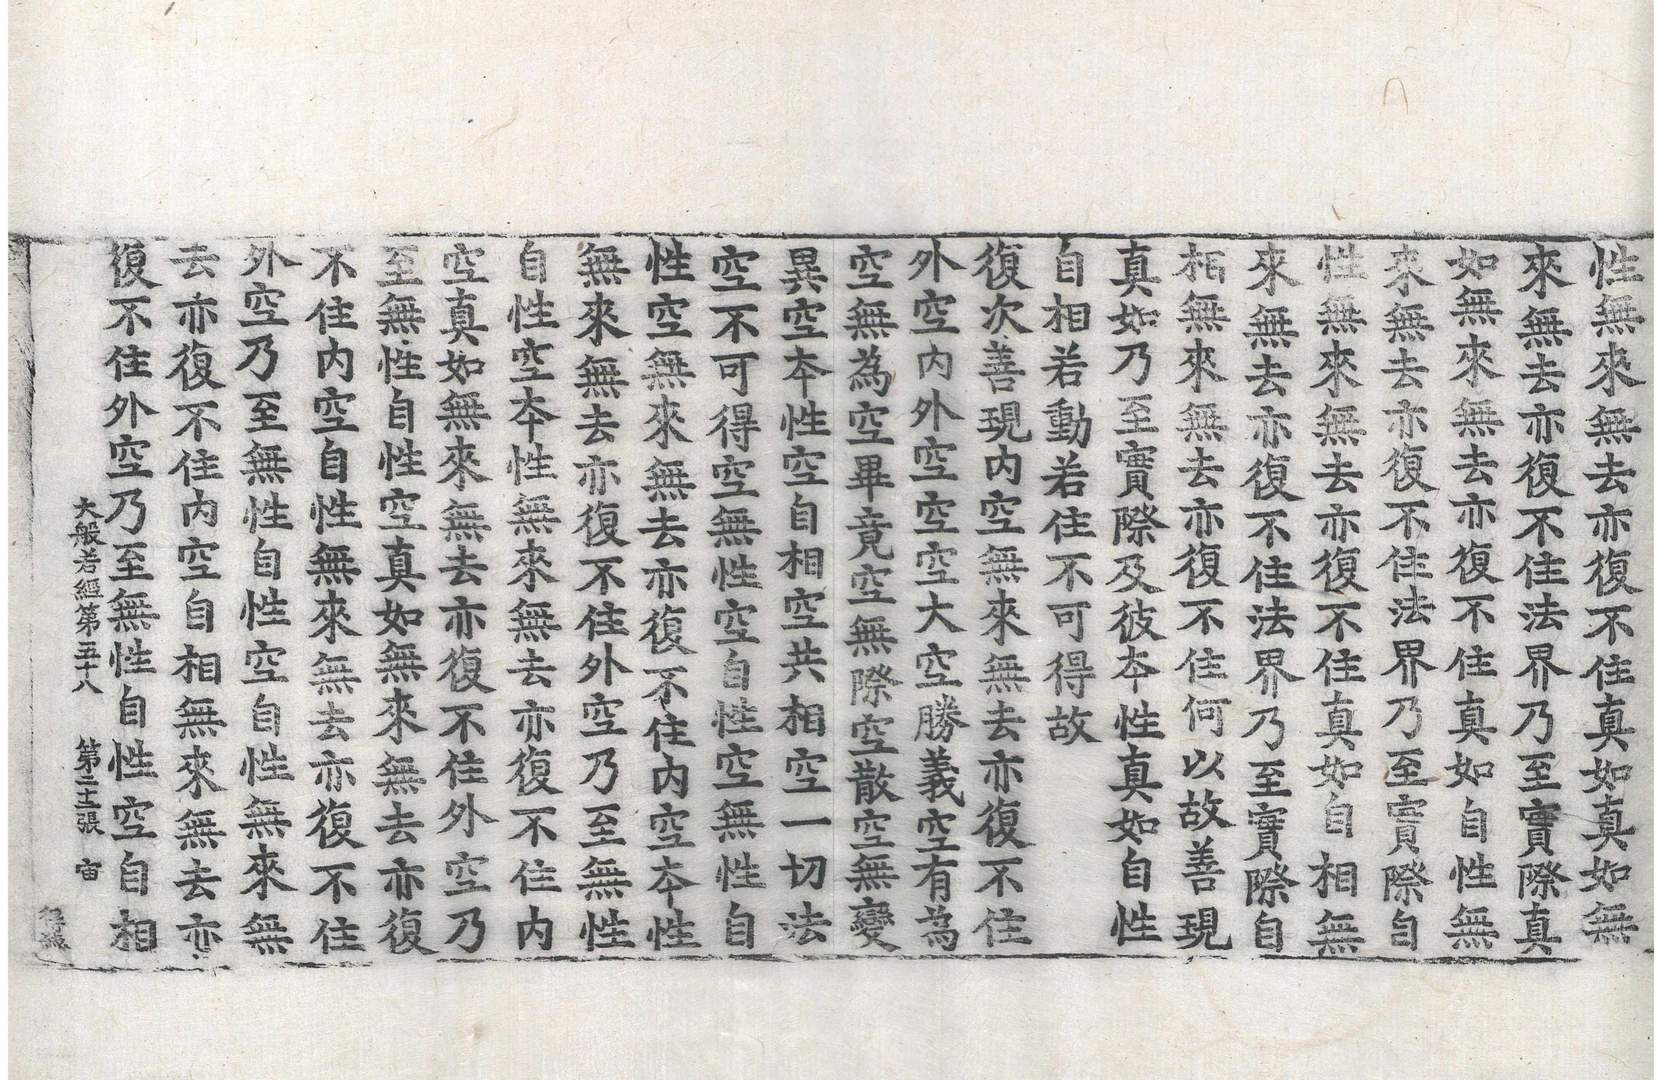 性無來無去亦復不住真如真如無
來無去亦復不住法界乃至實際真
如無來無去亦復不住真如自性無
來無去亦復不住法界乃至實際自
性無來無去亦復不住真如自相無
來無去亦復不住法界乃至實際自
相無來無去亦復不住何以故善現
真如乃至實際及彼夲性真如自性
自相若動若住不可得故
復次善現内空無來無去亦復不住
外空内外空空空大空勝義空有為
空無為空畢竟空無際空散空無變
異空夲性空自相空共相空一切法
空不可得空無性空自性空無性自
性空無來無去亦復不住内空夲性
無來無去亦復不住外空乃至無性
自性空夲性無來無去亦復不住内
空真如無來無去亦復不住外空乃
至無性自性空真如無來無去亦復
不住内空自性無來無去亦復不住
外空乃至無性自性空自性無來無
去亦復不住内空自相無來無去亦
復不住外空乃至無性自性空自相
大般若經第五十八 第二十張 宙